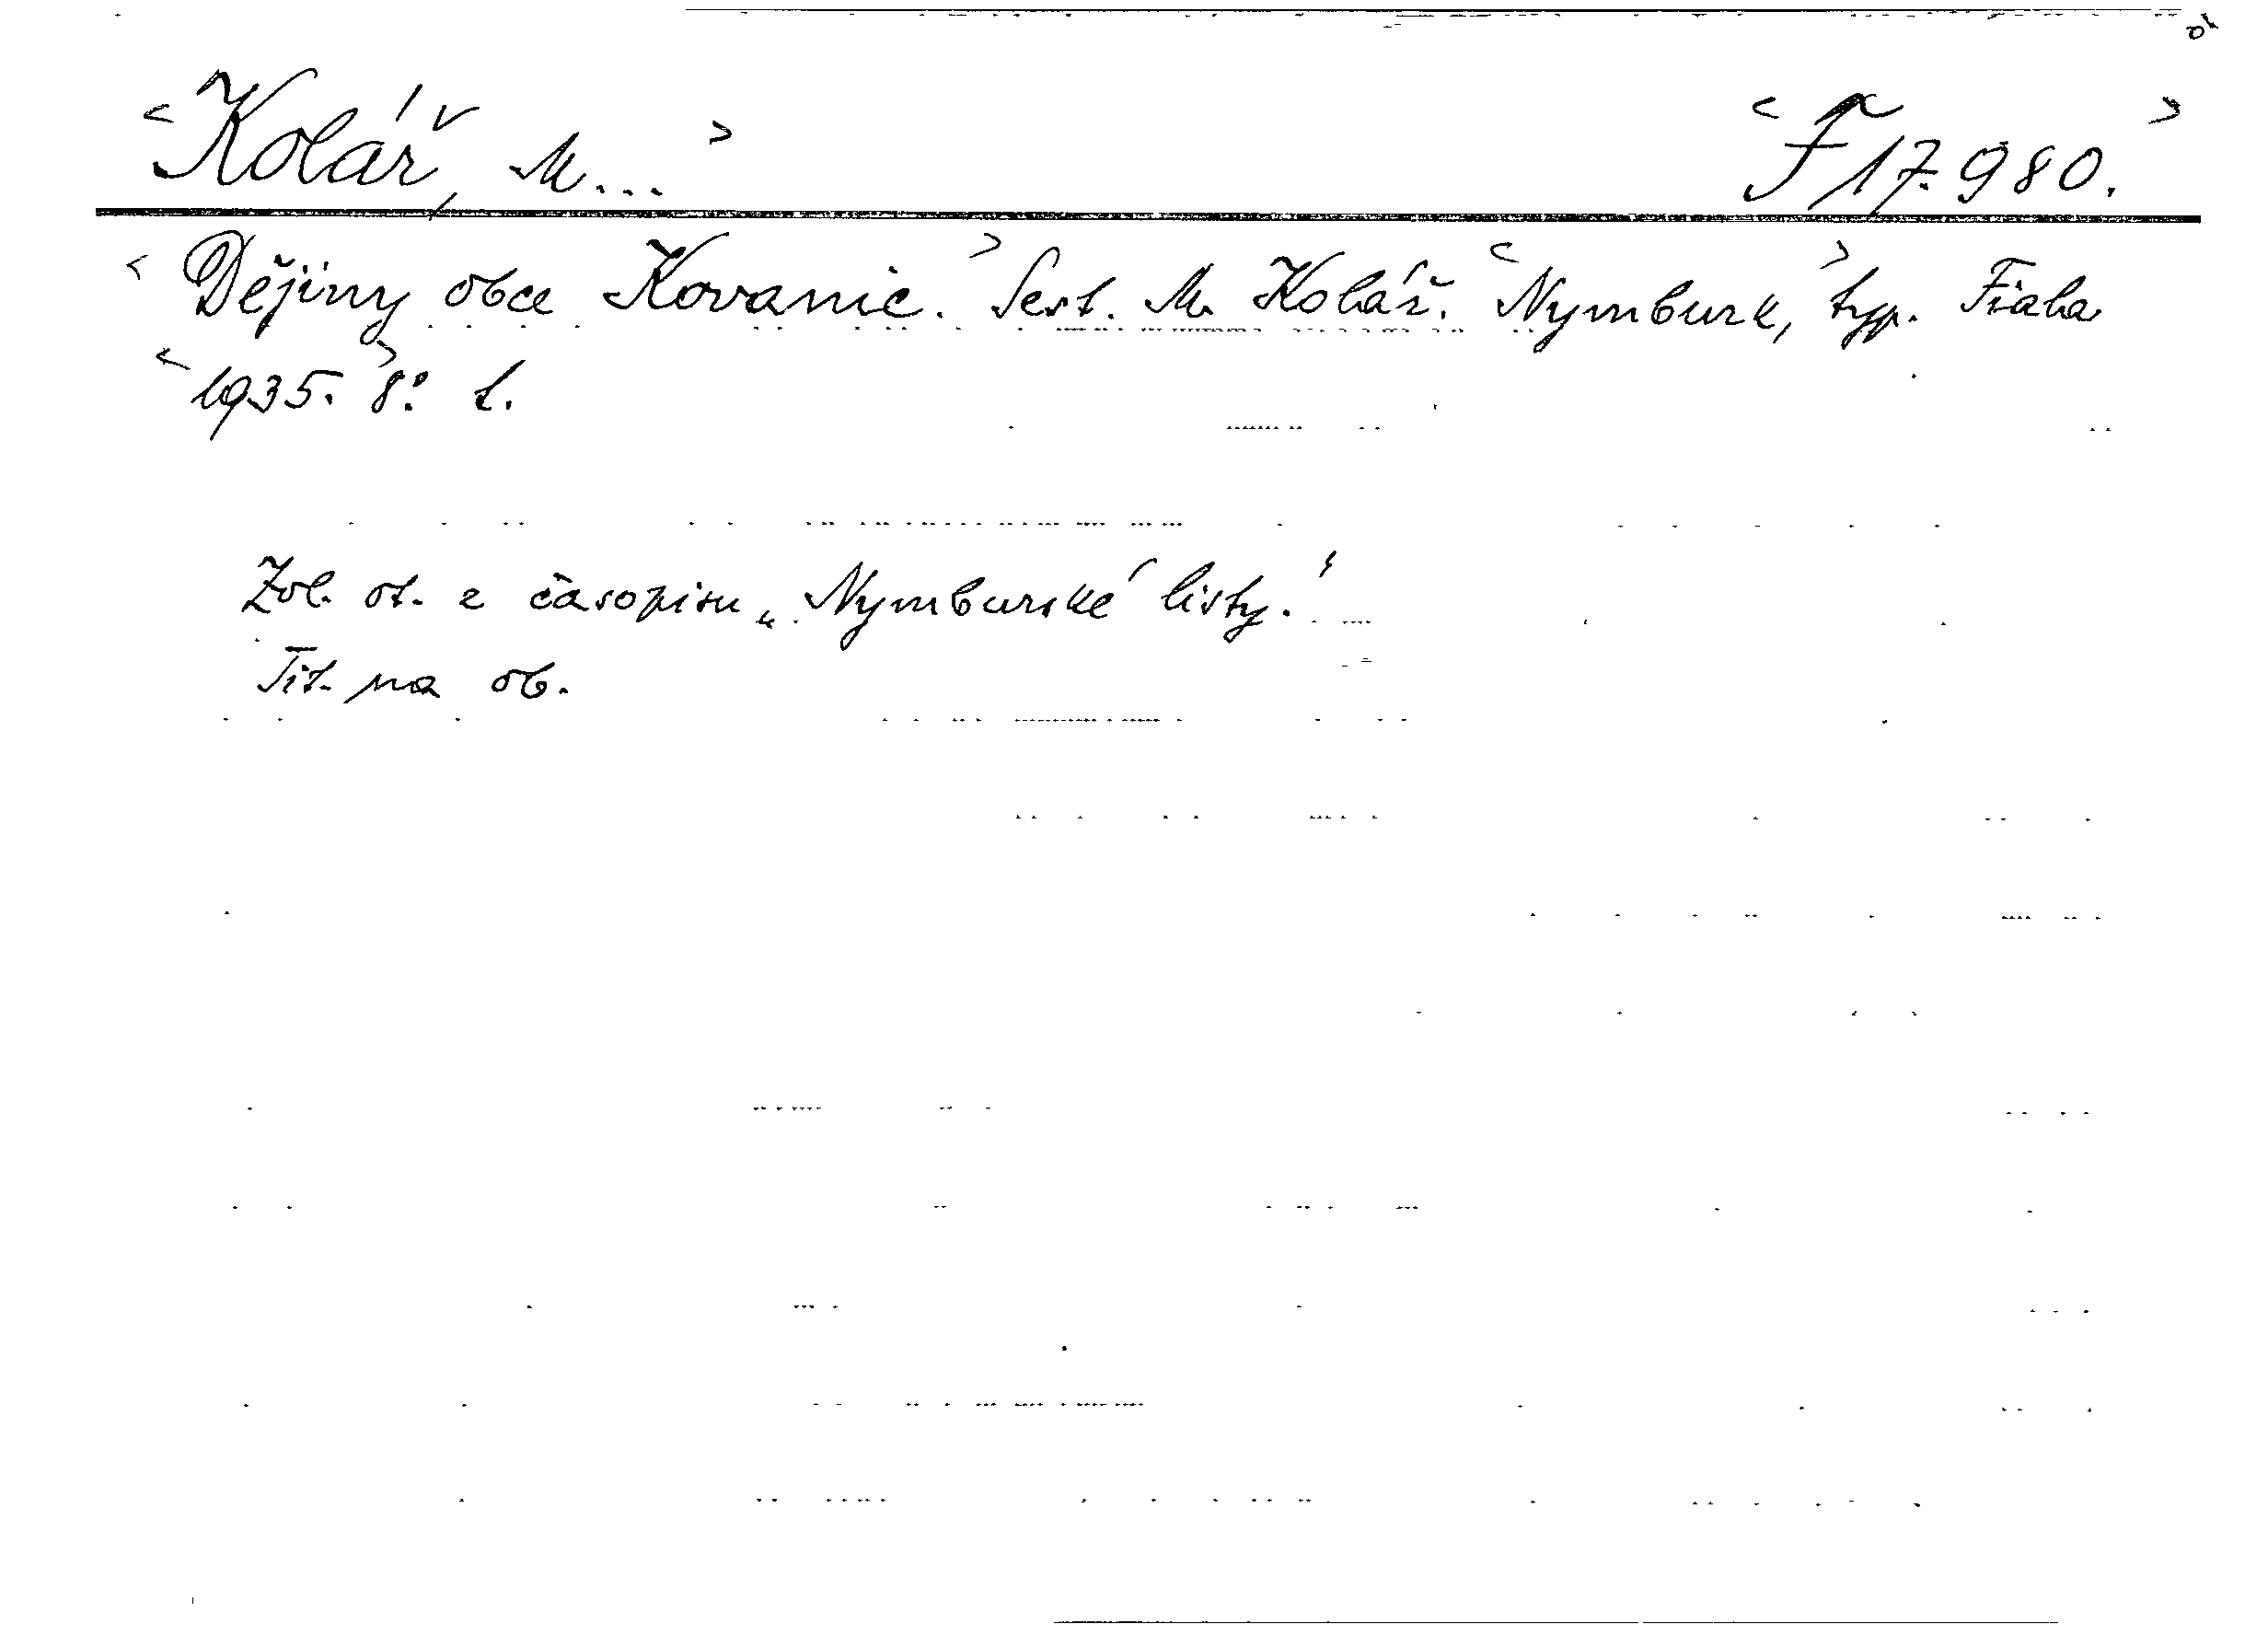 <Kolář, M...> <F 17.980.>
<Dějiny obce Kovanic.> Sest. M. Kolář. <Nymburk,> typ. Fiala
<1935.> 8°. t.
Zvl. ot. z časopisu „Nymburské listy."
Tit. na ob.